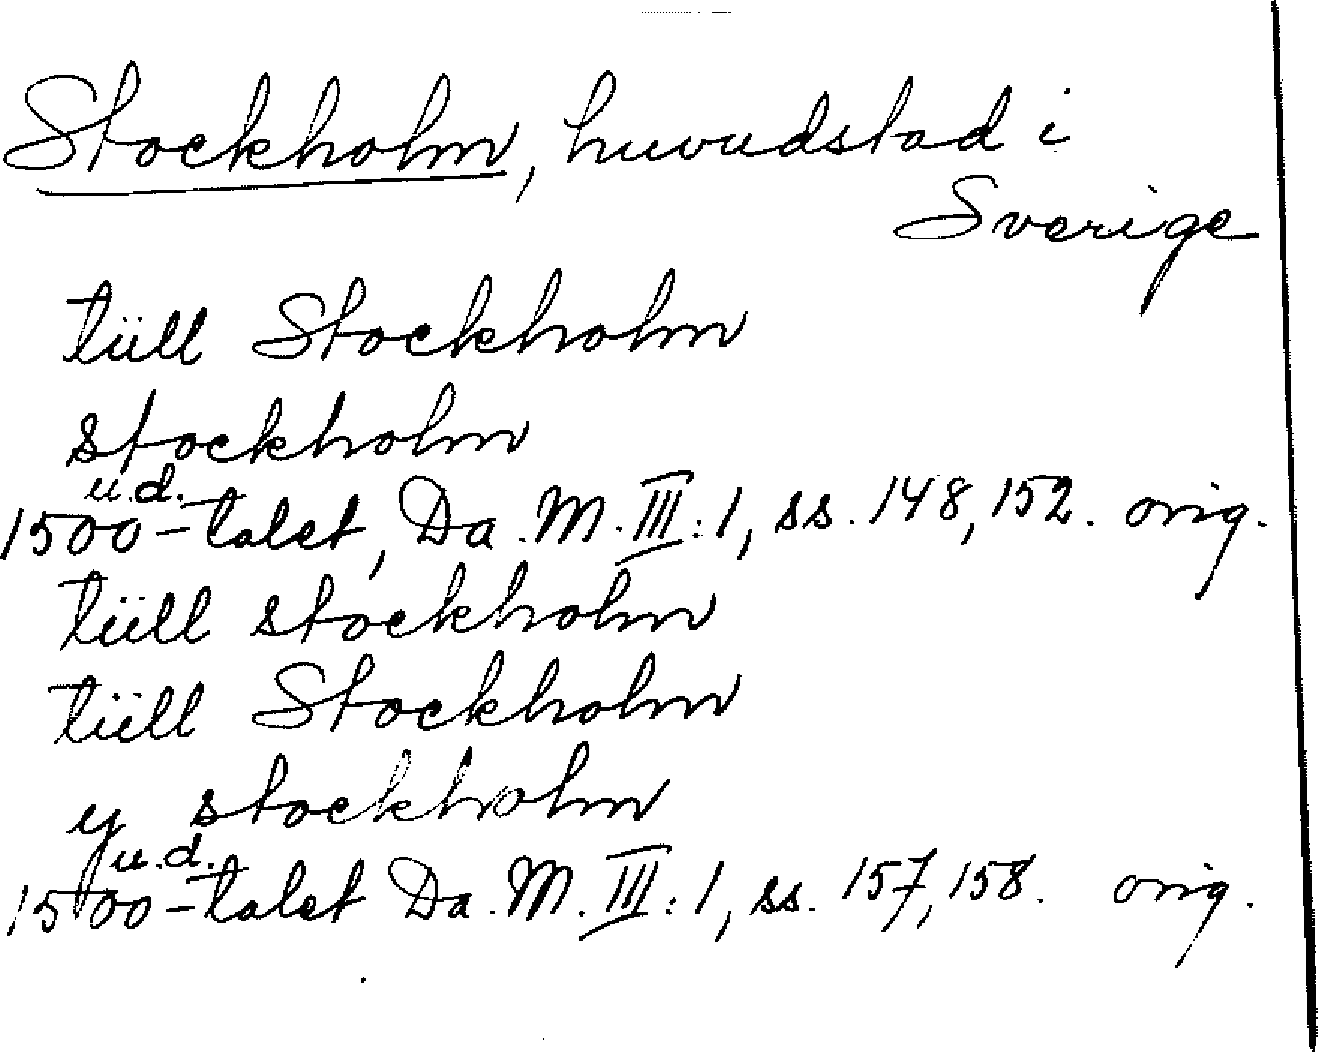 Stockholm, huvudstad i
Sverige
tüll Stockholm
stockholm
u.d.
1500-talet, Da. M. III: 1, ss. 148, 152. orig.
tüll stockholm
tüll Stockholm
y stockholm
u.d.
1500-talet Da. M. III: 1, ss. 157, 158. orig.